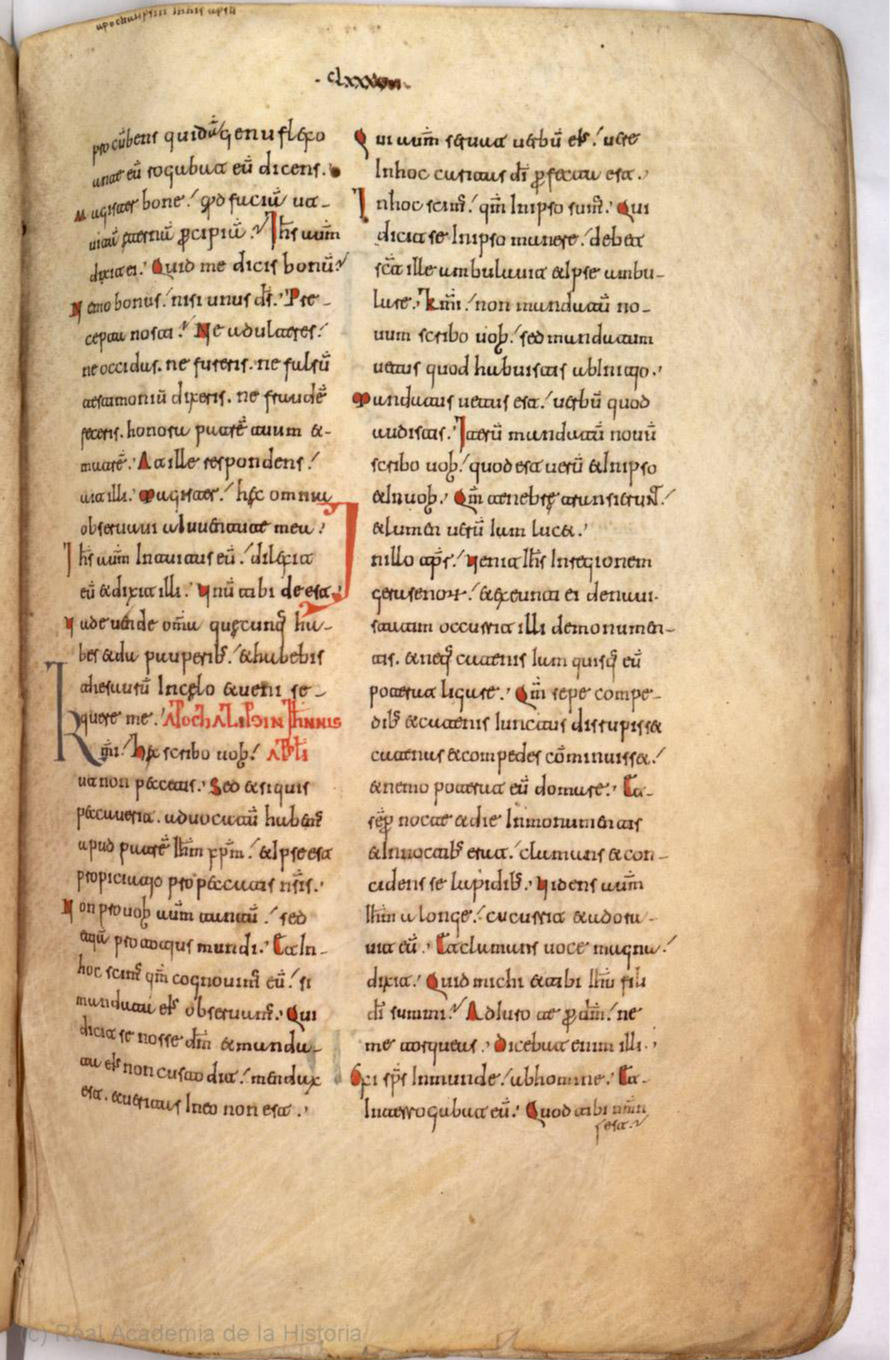 apocalipsin iohis aptli
clxxxvii
procūbens quidā genuflexo
ante eū rogabat eū dicens.
Magister bone. qd faciā ut
uitā eternā p̄cipiā. Ihs aūm
dixit ei. Quid me dicis bonū
Nemo bonus. nisi unus ds̄. Pre-
cepta nosti. Ne adulteres.
ne occidas. ne fureris. ne falsū
testimoniū dixeris. ne fraudē
feceris. honora patrē tuum &
matrē. At ille respondens.
ait illi. Magister. hęc omnia
obseruaui a Iuuentute mea.
Ihs aūm Intuitus eū. dilexit
eū & dixit illi. Unū tibi deest.
Uade uende omīa quęcunq ha-
bes & da pauperib. & habebis
thesaurū In cęlo & ueni se-
quere me. APOCALIPSIN IOHNNIS
Kmi. hęc scribo uob. APTLI
ut non peccetis. Sed & si quis
peccauerit. aduocatū habemꝰ
apud patrē Ihm xpm. & Ipse est
propitiatio pro peccatis nsis.
Non pro nob aūm tantū. sed
etiā pro totius mundi. Et In
hoc scimꝰ qm cognouimꝰ eū. si
mandata eis obseruemꝰ. Qui
dicit se nosse dm & manda-
ta eis non custodit. mendax
est. & ueritas In eo non est.
Qui aūm seruat uerbū eis. uere
In hoc caritas di p̄fecta est.
In hoc scimꝰ. qm In ipso sumꝰ. Qui
dicit se In ipso manere. debet
sct̄ ille ambulauit & Ipse ambu-
lare. Kmi. non mandatū no-
uum scribo uob. sed mandatum
uetus quod habuistis ab Initio.
Mandatus uetus est. uerbū quod
audistis. Iterū mandatū nouū
scribo uob. quod est uerū & In ipso
& In uob. Qm tenebrę transierunt.
& lumen uerū Iam lucet.
In illo tps. Uenit Ihs In regionem
gerasenor. & exeunti ei de naui.
statim occurrit illi de monumen-
tis. & neq catenis Iam quisq eū
poterat ligare. Qm sepe compe-
dib & catenis Iunctus disrupisset
catenas & compedes cōminuisset.
& nemo poterat eū domare. Et
semp nocte & die In monumentis
& In montib erat. clamans & con-
cidens se lapidib. Uidens aūm
Ihm a longe. cucurrit & adora-
uit eū. Et clamans uoce magna.
dixit. Quid michi & tibi Ihu fili
di summi. Adiuro te p dm. ne
me torqueas. Dicebat enim illi.
Exi sps Inmunde. ab homine. Et
Interrogabat eū. Quod tibi nmn
est.
(c) Real Academia de la Historia